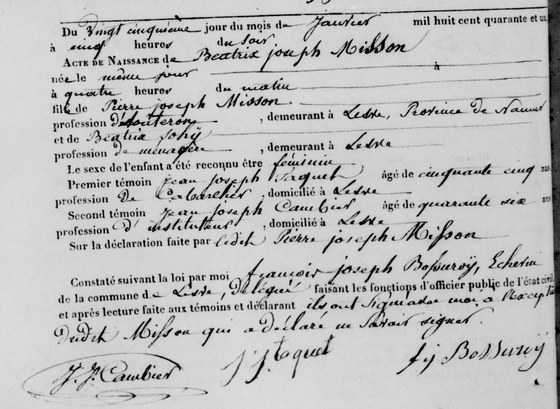 Du Vingt cinquième jour du mois de Janvier mil huit cent quarante et un
à cinq heures du soir
ACTE DE NAISSANCE de Béatrix joseph Misson
née le même jour à
à quatre heures du matin
fille de Pierre joseph Misson
profession , demeurant à Lesve, Province de Namur
et de Béatrix Sohÿ
profession de menagère , demeurant à Lesve
Le sexe de l'enfant a été reconnu être féminin
Premier témoin Jean Joseph Taquet âgé de cinquante cinq ans
profession De Cabaretier , domicilié à Lesve
Second témoin Jean Joseph Cambier âgé de quarante six ans
profession D'instituteur , domicilié à Lesve
Sur la déclaration faite par ledit Pierre joseph Misson
Constaté suivant la loi par moi françois joseph Bossuroÿ, Echevin
de la commune de Lesve, Délégué faisant les fonctions d'officier public de l'état civil
et après lecture faite aux témoins et déclarant ils ont signé avec moi à l'exception
Dudit Misson qui a déclaré ne savoir signer.
J. Jh Cambier
J. J. taquet
f j Bossuroÿ